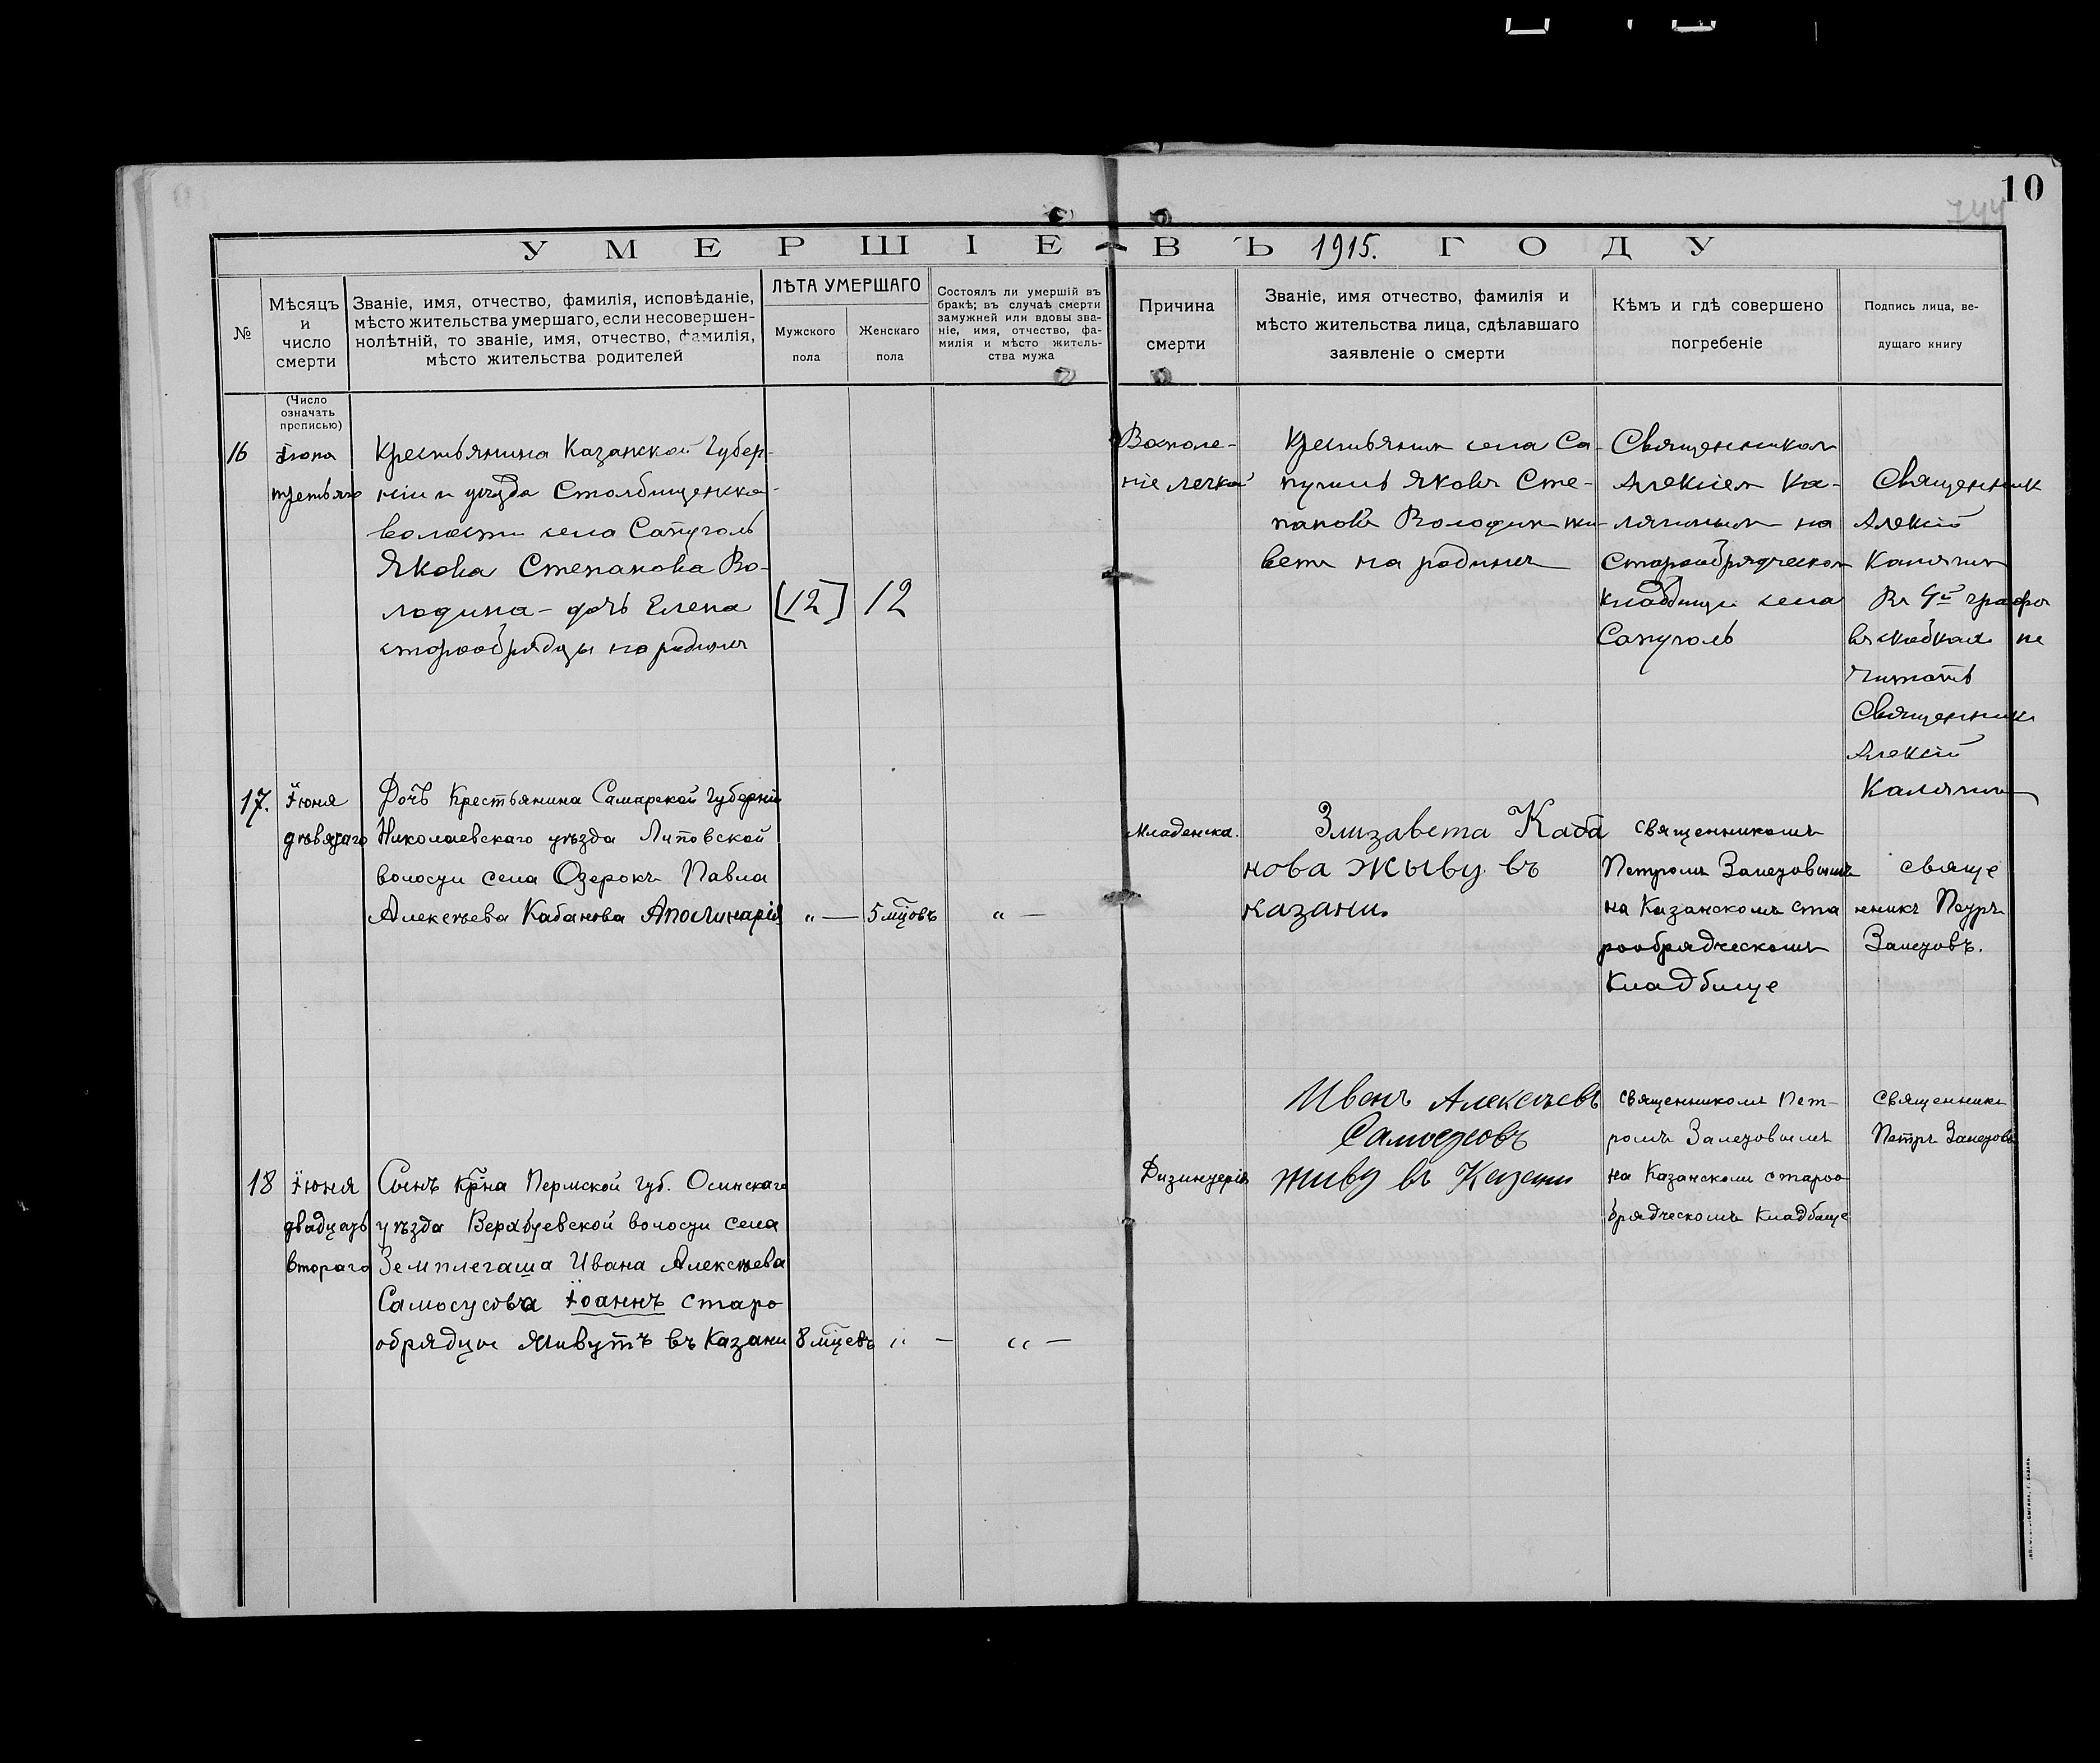 10
744
УМЕРШІЕ ВЪ 1915. ГОДУ
№
Мѣсяцъ
и
число
смерти
Званіе, имя, отчество, фамилія, исповѣданіе,
мѣсто жительства умершаго, если несовершен-
нолѣтній, то званіе, имя, отчество, фамилія,
мѣсто жительства родителей
ЛѢТА УМЕРШАГО
Мужского
пола
Женскаго
пола
Состоялъ ли умершій въ
бракѣ; въ случаѣ смерти
замужней или вдовы зва-
ніе, имя, отчество, фа-
милія и мѣсто житель-
ства мужа
Причина
смерти
Званіе, имя отчество, фамилія и
мѣсто жительства лица, сдѣлавшаго
заявленіе о смерти
Кѣмъ и гдѣ совершено
погребеніе
Подпись лица, ве-
дущаго книгу
(Число
означать
прописью)
16
Іюна
третьяго
Крестьянина Казанской Губер-
ніи и уѣзда Столбищенско-
волости села Сапуголь
Якова Степанова Во-
лодина - дочь Елена
старообрядцы на родинѣ
[12]
12
Воспале-
ніе легкой
Крестьянин села Са-
пуголь Яковъ Сте-
пановъ Володин жи-
ветъ на родинѣ
Священником
Алексіем Ка-
лягиным на
Старообрядческом
кладбище села
Сапуголь
Священник
Алексій
Калягин
Въ 4й графе
въ скобках не
читать
Священникъ
Алексій
Калягин
17.
Іюня
дѣвятаго
Дочь Крестьянина Самарской Губерніи
Николаевскаго уѣзда Липовской
волости села Озерокъ Павла
Алексѣева Кабанова Аполинарія
„ —
5 мцовъ
„ —
Младенска.
Элизавета Каба
нова жыву въ
казани.
священникомъ
Петромъ Залетовымъ
на Казанскомъ ста
рообрядческомъ
Кладбище
свяще
нникъ Петръ
Залетовъ.
18
Іюня
двадцать
втораго
Сынъ крнa Пермской губ. Осинскаго
уѣзда Верхбуевской волости села
Земплегаша Ивана Алексѣева
Самосусова Іоаннъ старо
обрядцы живутъ въ Казани
8 мцевъ
„ —
„ —
Дизинтерія
Иванъ Алексѣевъ
Самосусовъ
живу въ Казани
священникомъ Пет-
ромъ Залетовымъ
на Казанскомъ староо
брядческомъ Кладбище
священникъ
Петръ Залетовъ